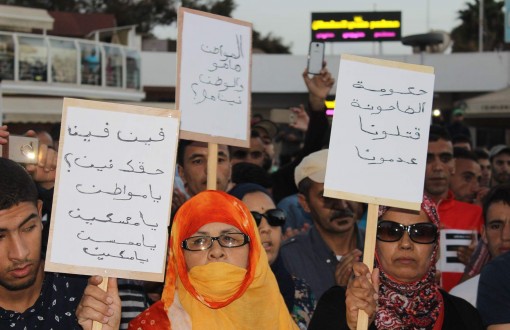 فين فينا
حقك فين؟
يا مواطن
يا مسكين
يا مسكين
يا مسكين
المواطن
والوطن
حكومة
الطاحونة
قتلونا
عدمونا